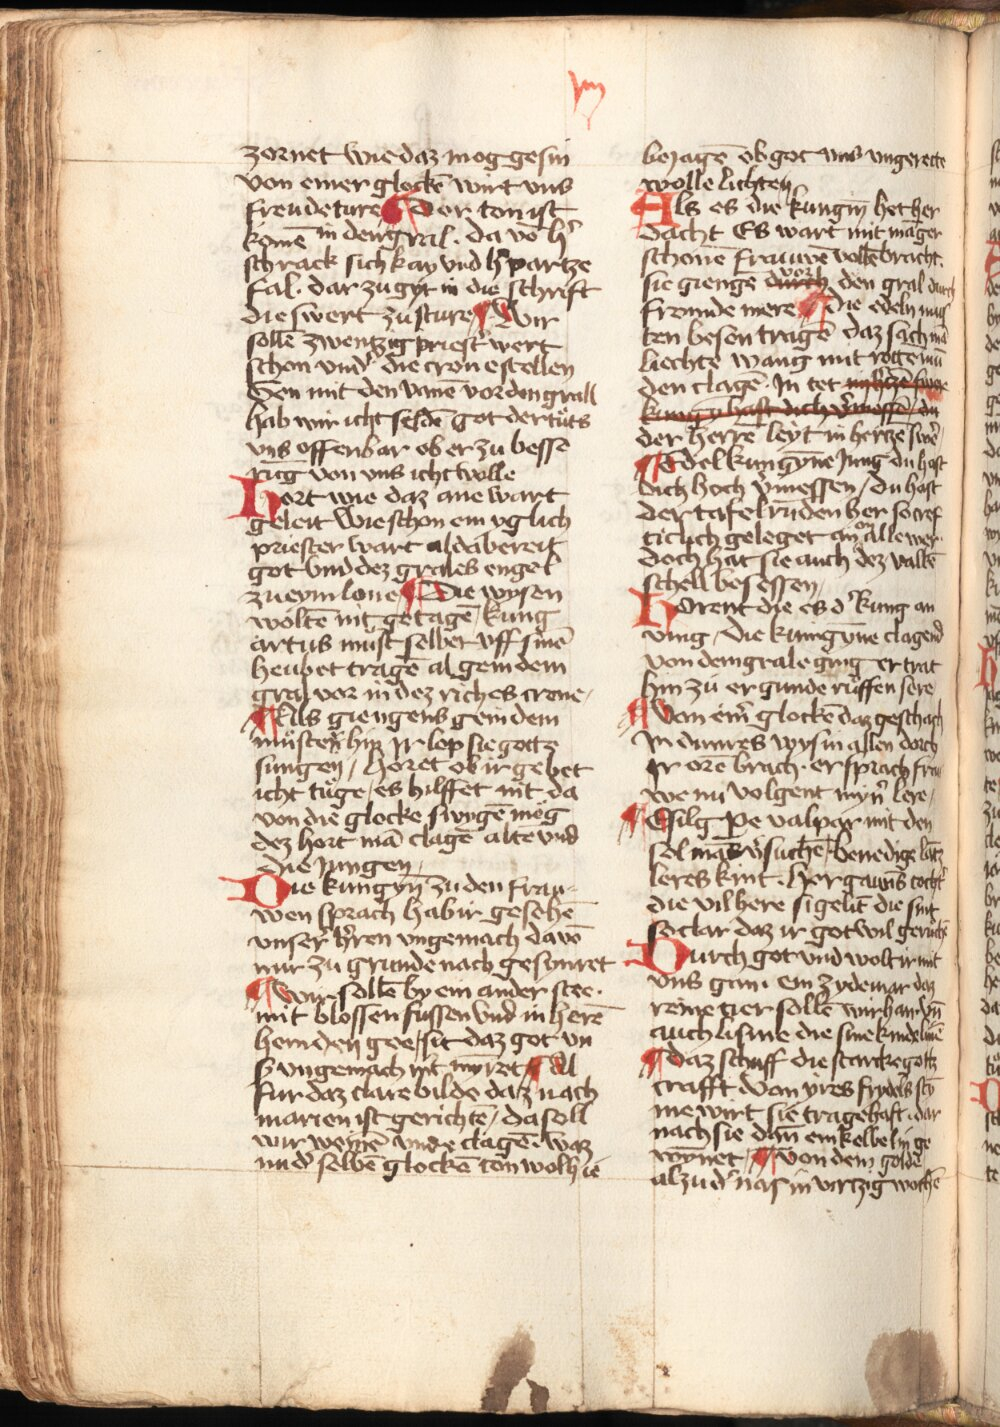 zornet wie daz mog gesin
von einer glocke͂ wirt vns
freude ture ¶ Der ton ist
kome͂ in den gral · da vo͂ h͛
schrack sich kay vnd h͛ partze
fal · dar zu gyt in die schrift
die swert zu sture ¶ Wir
solle͂ zwentzig priest͛ wert
schon vnd͛ die cron e stellen
Gen mit den vane͂ vor den grall
hab wir icht selde͂ got der tüts
vns offenbar ob er zu besse
ru͂g von vns icht wolle
Hort wie daz ane wart
geleit Wie schon ein yglich
priester wart al da bereit
got vnd dez grales engel
zu eym lone ¶ Die wysen
wolte͂ nit getage͂ / kung
artus must selber vff sine͂
heubet trage͂ al gein dem
gral vor in dez riches crone /
¶ Als giengens gein dem
münster hin Ir lop sie gotte
sungen / Horet ob ir gebet
icht tüge / es hilffet nit da
von die glocke swyge͂ mög
dez hort ma͂ clage͂ alte vnd
die Jungen /
Die kungyn͂ zu den frau-
wen sprach hab ir gesehe͂
vnser h͛ren vngemach davo͂
mir zu grunde nach gesynret
¶ Wir solle͂ by ein ander stee ·
mit blossen fussen vnd in here͂
hemden gee / sit daz got vn
s͛ vngemach nit myrret ¶ Al
fur daz clare bilde daz nach
marien ist gerichte / da soll
wir weyne͂ vnde clage͂ · waz
vnd͛ selbe͂ glocke͂ ton wol hie
beiage͂ ob got vns vngerecte
wolle lichten
Als es die kungin͂ het her
dacht Es wart mit mager
schone͂ frauwe͂ volle͂bracht ·
sie gienge͂ durch vor den gral durch
fremde mere ¶ Die edeln mug
ten besen trage͂ daz sach ma͂
liechte wang mit rotte mu͂
den clage͂ · In tet
kungyn hast dich v͛messe͂ / du
der herre͂ leyt in hertze͂ swe͛
¶ Edel kungyne Jung du hast
dich hoch v͛messen / du hast
der tafelrunden her so cref
ticlich geleget an on alle wer ·
doch hat sie auch dez valke͂
schell besessen /
Horent die es d͛ kung an
ving / die kungyne clagend
von dem grale ging er trat
hin zu er gunde rüffen sere
¶ Von eim͛ glocke͂ daz geschach
In dunres wys in allen dorch
Ir ore͂ brach · er sprach frau
we nu volgent myn͛ lere /
¶ Esilg pe valpar mit den
sol ma͂ v͛suche͂ / benedige latz
leres kint · Her gawi͂s tocht͛
die vil here sigelit die sint
so clar daz ir got wil geruche͂
Durch got vnd wolt ir mit
vns gan · ein zydemar daz
reine tier solle͂ wir han · vn͂
auch lisine die sine kindeline͂
¶ daz schuff die starcke gottz
crafft von yres frydels sty͂
me wirt sie tragehaft · dar
nach sie dan͂ ein kelbelin ge
wynet / ¶ Von dem golde͂
al zu d͛ nas in virtzig woche͂